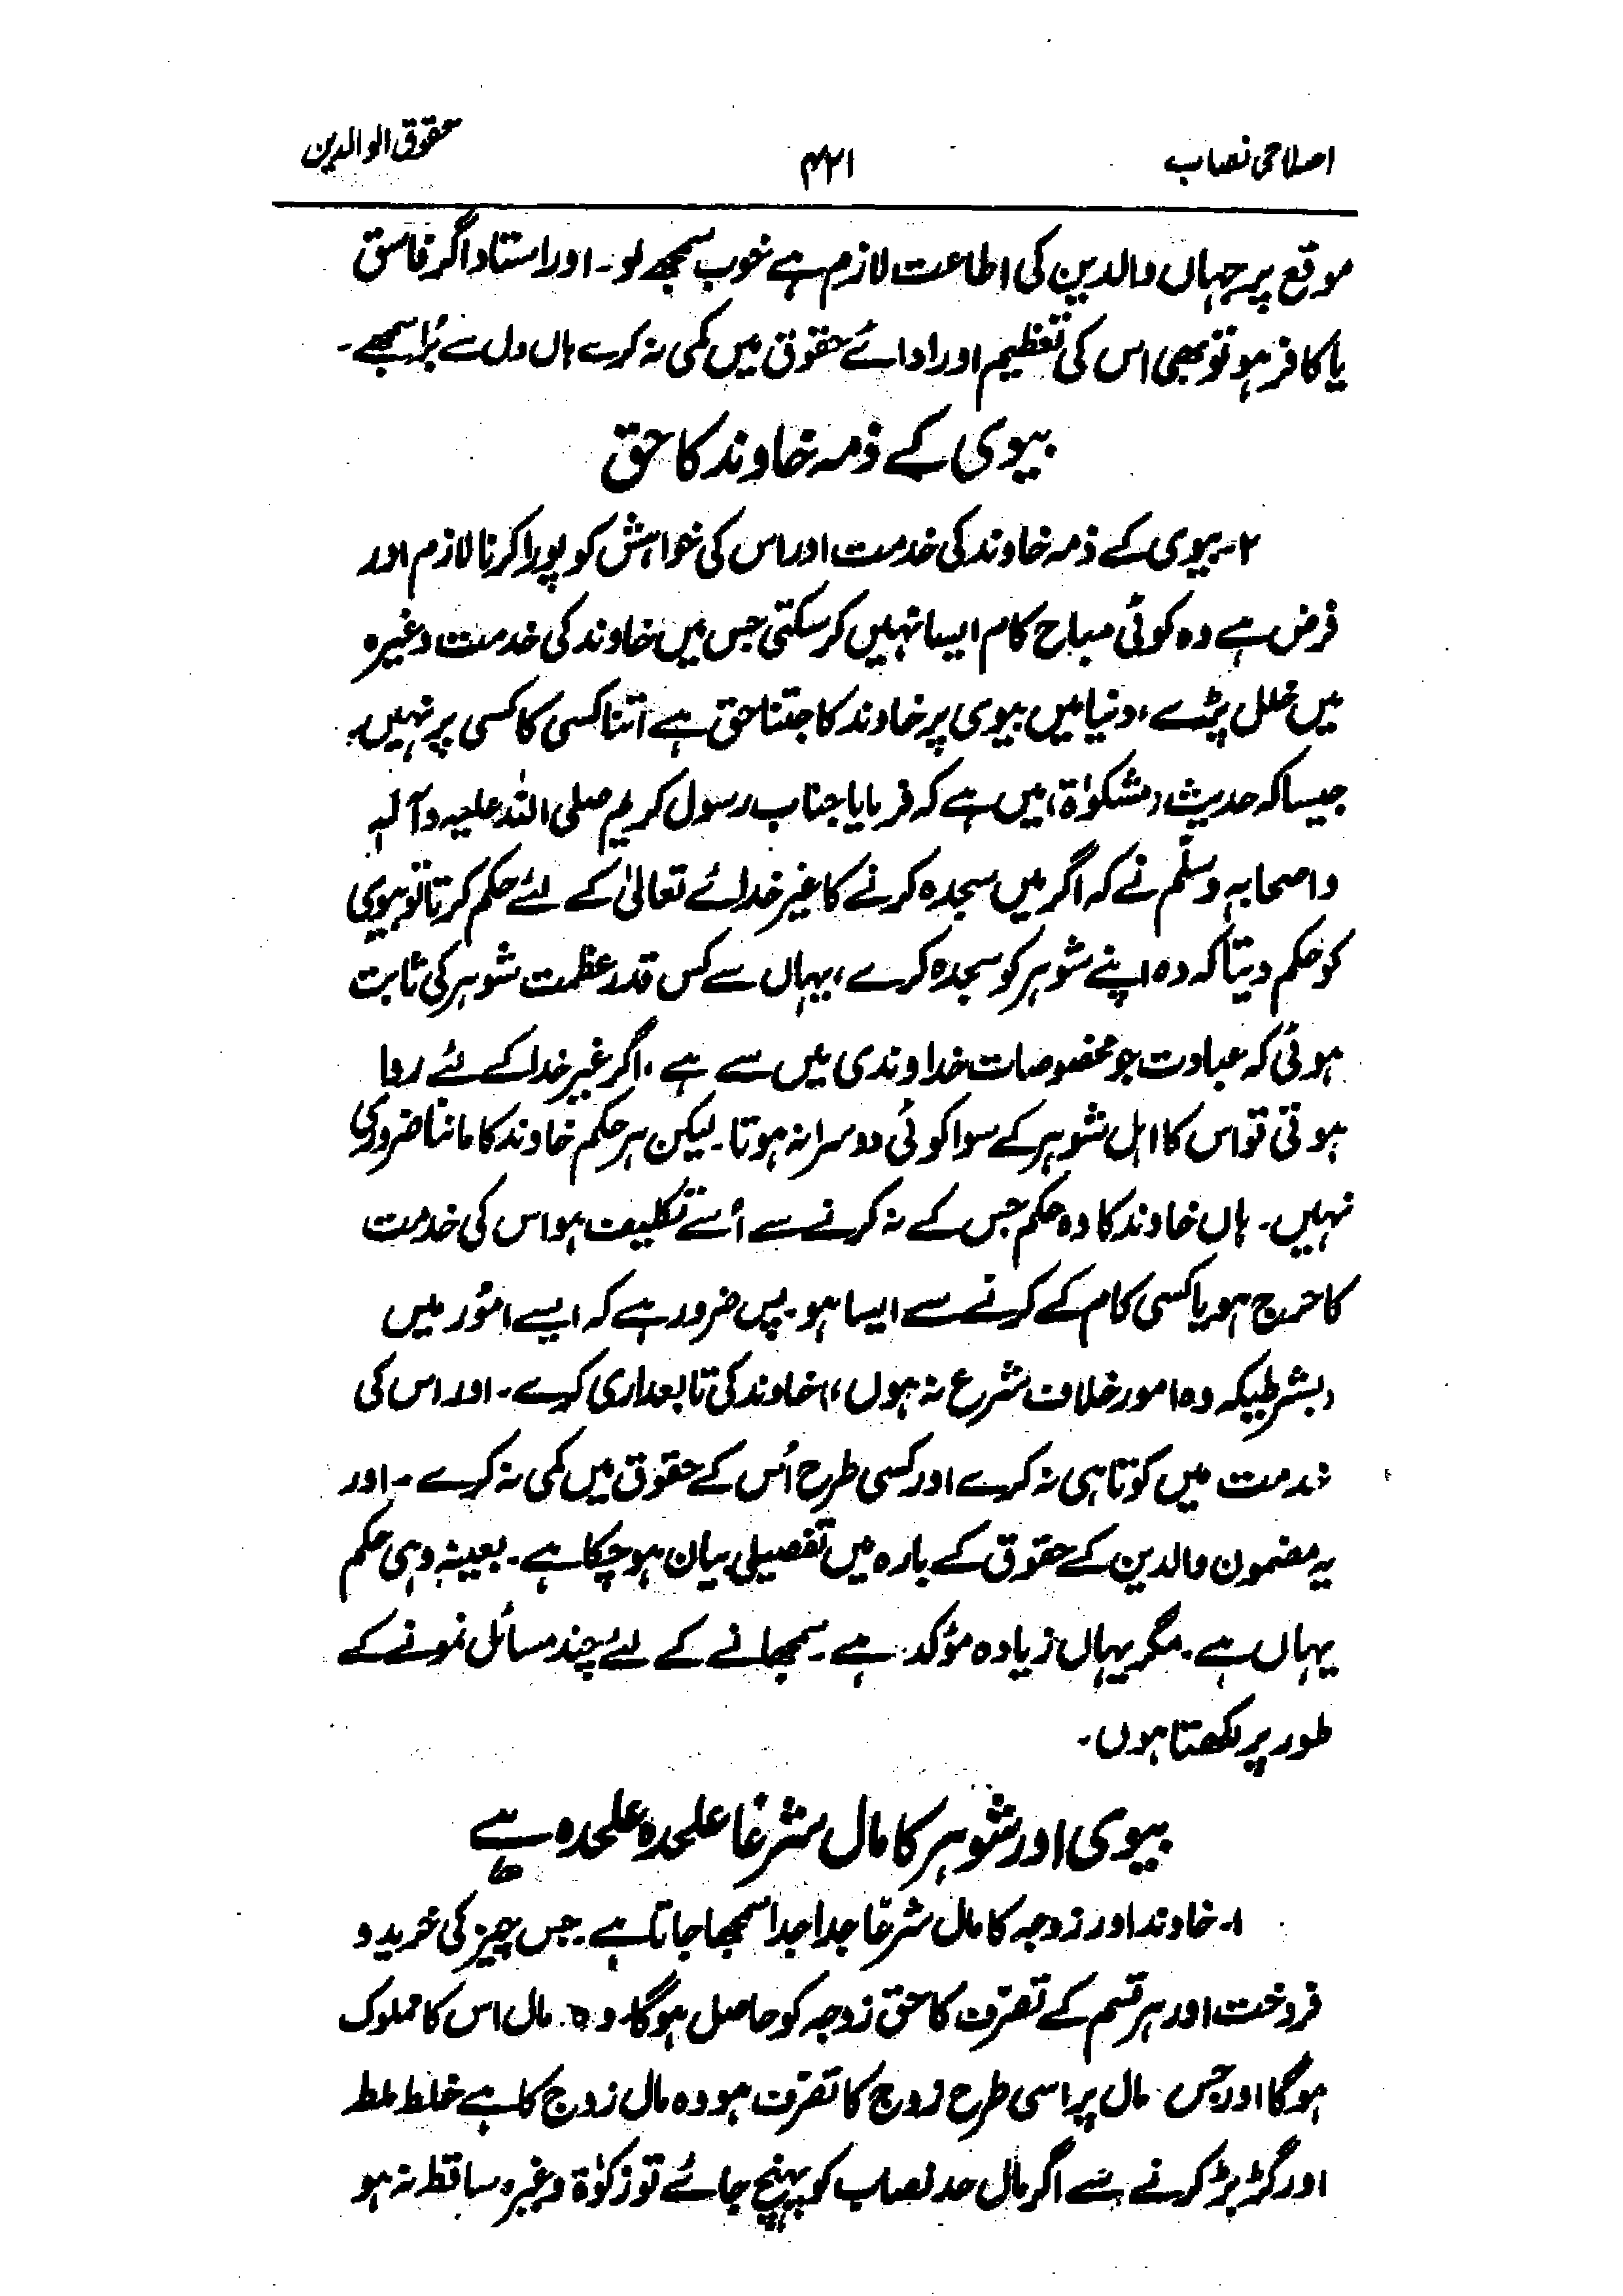 اصلاحی نصاب ۴۲۱ حقوق الوالدین
موقع پر جہاں والدین کی اطاعت لازم ہے خوب سمجھ لو۔ اور استاد اگر فاسق
یا کافر ہو تو بھی اس کی تعظیم اور ادائے حقوق میں کمی نہ کرے ہاں دل سے بُرا سمجھے۔
بیوی کے ذمہ خاوند کا حق
۲۔ بیوی کے ذمہ خاوند کی خدمت اور اس کی خواہش کو پورا کرنا لازم اور
فرض ہے وہ کوئی مباح کام ایسا نہیں کر سکتی جس میں خاوند کی خدمت وغیرہ
میں خلل پڑے، دنیا میں بیوی پر خاوند کا جتنا حق ہے اتنا کسی کا کسی پر نہیں۔
جیسا کہ حدیث (مشکوٰۃ) میں ہے کہ فرمایا جناب رسول کریم صلی اللہ علیہ وآلہٖ
واصحابہٖ وسلّم نے کہ اگر میں سجدہ کرنے کا غیر خدائے تعالیٰ کے لئے حکم کرتا تو بیوی
کو حکم دیتا کہ وہ اپنے شوہر کو سجدہ کرے، یہاں سے کس قدر عظمت شوہر کی ثابت
ہوئی کہ عبادت جو مخصوصات خداوندی میں سے ہے، اگر غیر خدا کے لئے روا
ہوتی تو اس کا اہل شوہر کے سوا کوئی دوسرا نہ ہوتا۔ لیکن ہر حکم خاوند کا ماننا ضروری
نہیں۔ ہاں خاوند کا وہ حکم جس کے نہ کرنے سے اُسے تکلیف ہو اس کی خدمت
کا حرج ہو یا کسی کام کے کرنے سے ایسا ہو۔ پس ضرور ہے کہ ایسے امُور میں
(بشرطیکہ وہ امور خلاف شرع نہ ہوں) خاوند کی تابعداری کرے۔ اور اس کی
خدمت میں کوتاہی نہ کرے اور کسی طرح اُس کے حقوق میں کمی نہ کرے۔ اور
یہ مضمون والدین کے حقوق کے بارہ میں تفصیلی بیان ہو چکا ہے۔ بعینہٖ وہی حکم
یہاں ہے۔ مگر یہاں زیادہ مؤکد ہے۔ سمجھانے کے لئے چند مسائل نمونے کے
طور پر لکھتا ہوں۔
بیوی اور شوہر کا مال شرعًا علیحدہ علیحدہ ہے
۱۔ خاوند اور زوجہ کا مال شرعًا جدا جدا سمجھا جاتا ہے۔ جس چیز کی خرید و
فروخت اور ہر قسم کے تصرّف کا حق زوجہ کو حاصل ہوگا۔ وہ مال اس کا مملوک
ہوگا اور جس مال پر اسی طرح زوج کا تصرّف ہو وہ مال زوج کا ہے خلط ملط
اور گڑبڑ کرنے سے اگر مال حد نصاب کو پہنچ جائے تو زکوٰۃ وغیرہ ساقط نہ ہو